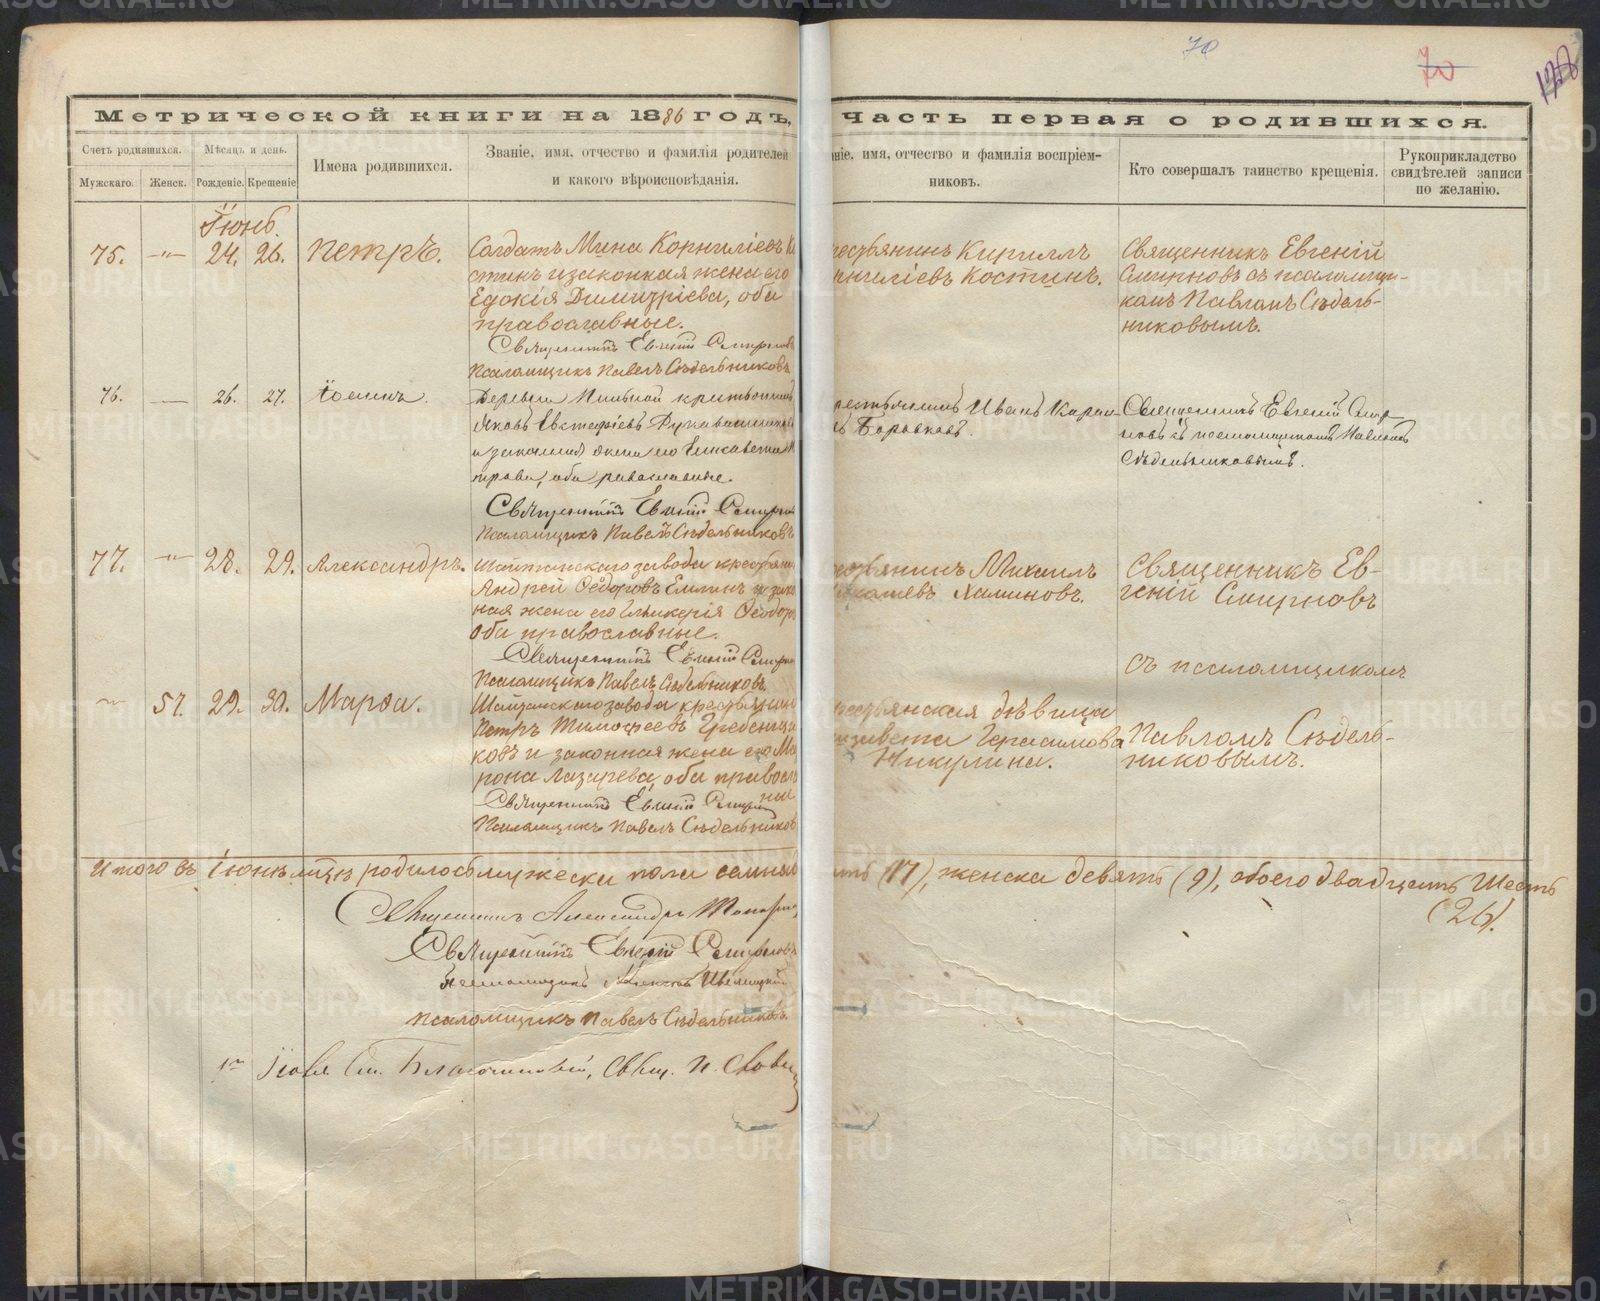 70
70
128
Метрической книги на 1886 годъ,
часть первая о родившихся.
Счетъ родившихся.
Мѣсяцъ и день.
Имена родившихся.
Званіе, имя, отчество и фамилія родителей
и какого вѣроисповѣданія.
Мужскаго.
Женск.
Рожденіе.
Крещеніе
ніе, имя, отчество и фамилія воспріем-
никовъ.
Кто совершалъ таинство крещенія.
Рукоприкладство
свидѣтелей записи
по желанію.
Іюнь.
75. -"- 24. 26. Петръ.
Солдатъ Мина Корниліевъ Ко
стинъ и законная жена его
Едокія Димитріева, оба
православные.
Священникъ Евгеній Смирновъ
Псаломщикъ Павелъ Сѣдельниковъ
рестьянинъ Кириллъ
рниліевъ Костинъ.
Священникъ Евгеній
Смирновъ съ псаломщи-
комъ Павломъ Сѣдель-
никовымъ.
76. — 26. 27. Іоаннъ.
Деревни крестьянинъ
Яковъ Евстафіевъ
и законная жена его Елисавета
трова, оба православные.
Священникъ Евгеній Смирн
Псаломщикъ Павелъ Сѣдельниковъ
рестьянинъ Иванъ
въ Боровковъ.
Священникъ Евгеній Смир-
новъ съ псаломщикомъ Павломъ
Сѣдельниковымъ.
77. -"- 28. 29. Александръ.
Шайтанскаго завода крестьянин
Андрей Ѳедоровъ Елнинъ и закон
ная жена его Гликерія Ѳеодор
оба православные.
Священникъ Евгеній Смирн
Псаломщикъ Павелъ Сѣдельниковъ
рестьянинъ Михаилъ
Халиновъ.
Священникъ Ев-
геній Смирновъ
съ псаломщикомъ
57. 29. 30. Марѳа.
Шайтанскаго завода крестьянинъ
Петръ Тимофеевъ Гребенщи
ковъ и законная жена его Ма
рона Лазарева, оба правосл
ные
Священникъ Евгеній Смирн
Псаломщикъ Павелъ Сѣдельников
рестьянская дѣвица
лизавета Герасимова
Никулина.
Павломъ Сѣдель-
никовымъ.
Итого въ Іюнѣ мцѣ родилось мужеска пола семнад
ать (17), женска девять (9), обоего двадцать шесть
(26).
Священникъ Александръ Топорк
Священникъ Евгеній Смирновъ
Псаломщикъ
Псаломщикъ Павелъ Сѣдельниковъ
Благочинный, Свящ. П.